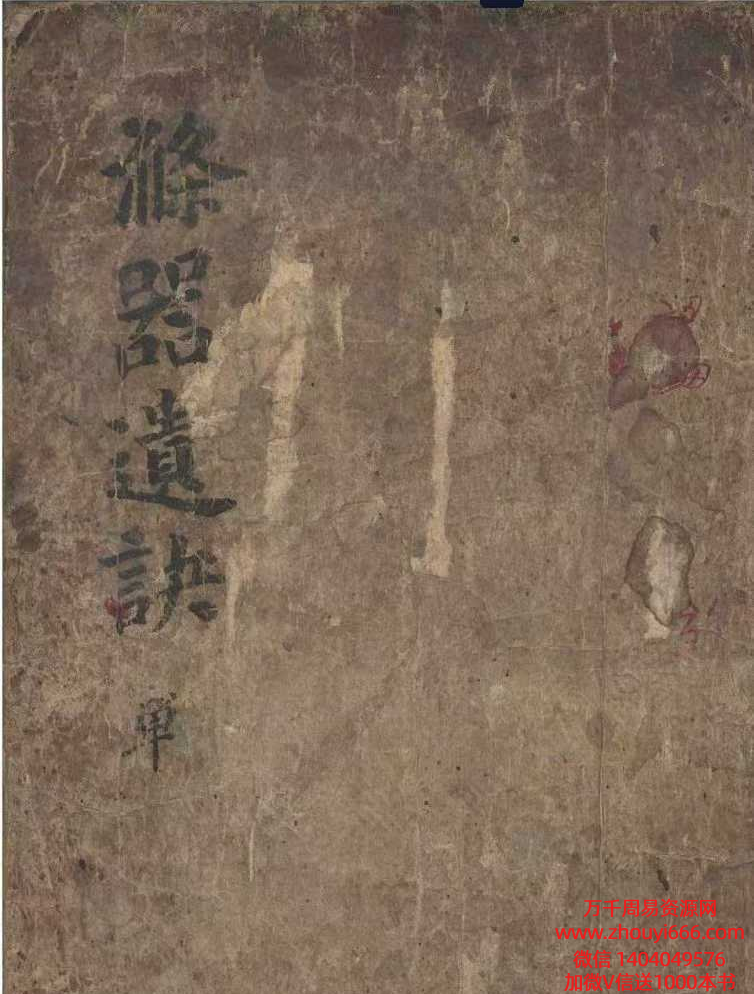 滌器遺訣
單
万千周易资源网
www.zhouyi666.com
微信 1404049576
加微V信送1000本书